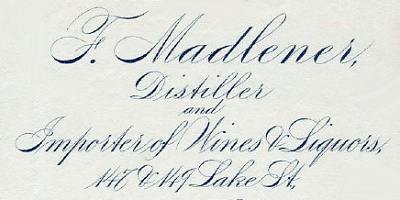 F. Madlener,
Distiller
and
Importer of Wines & Liquors,
147 & 149 Lake St.